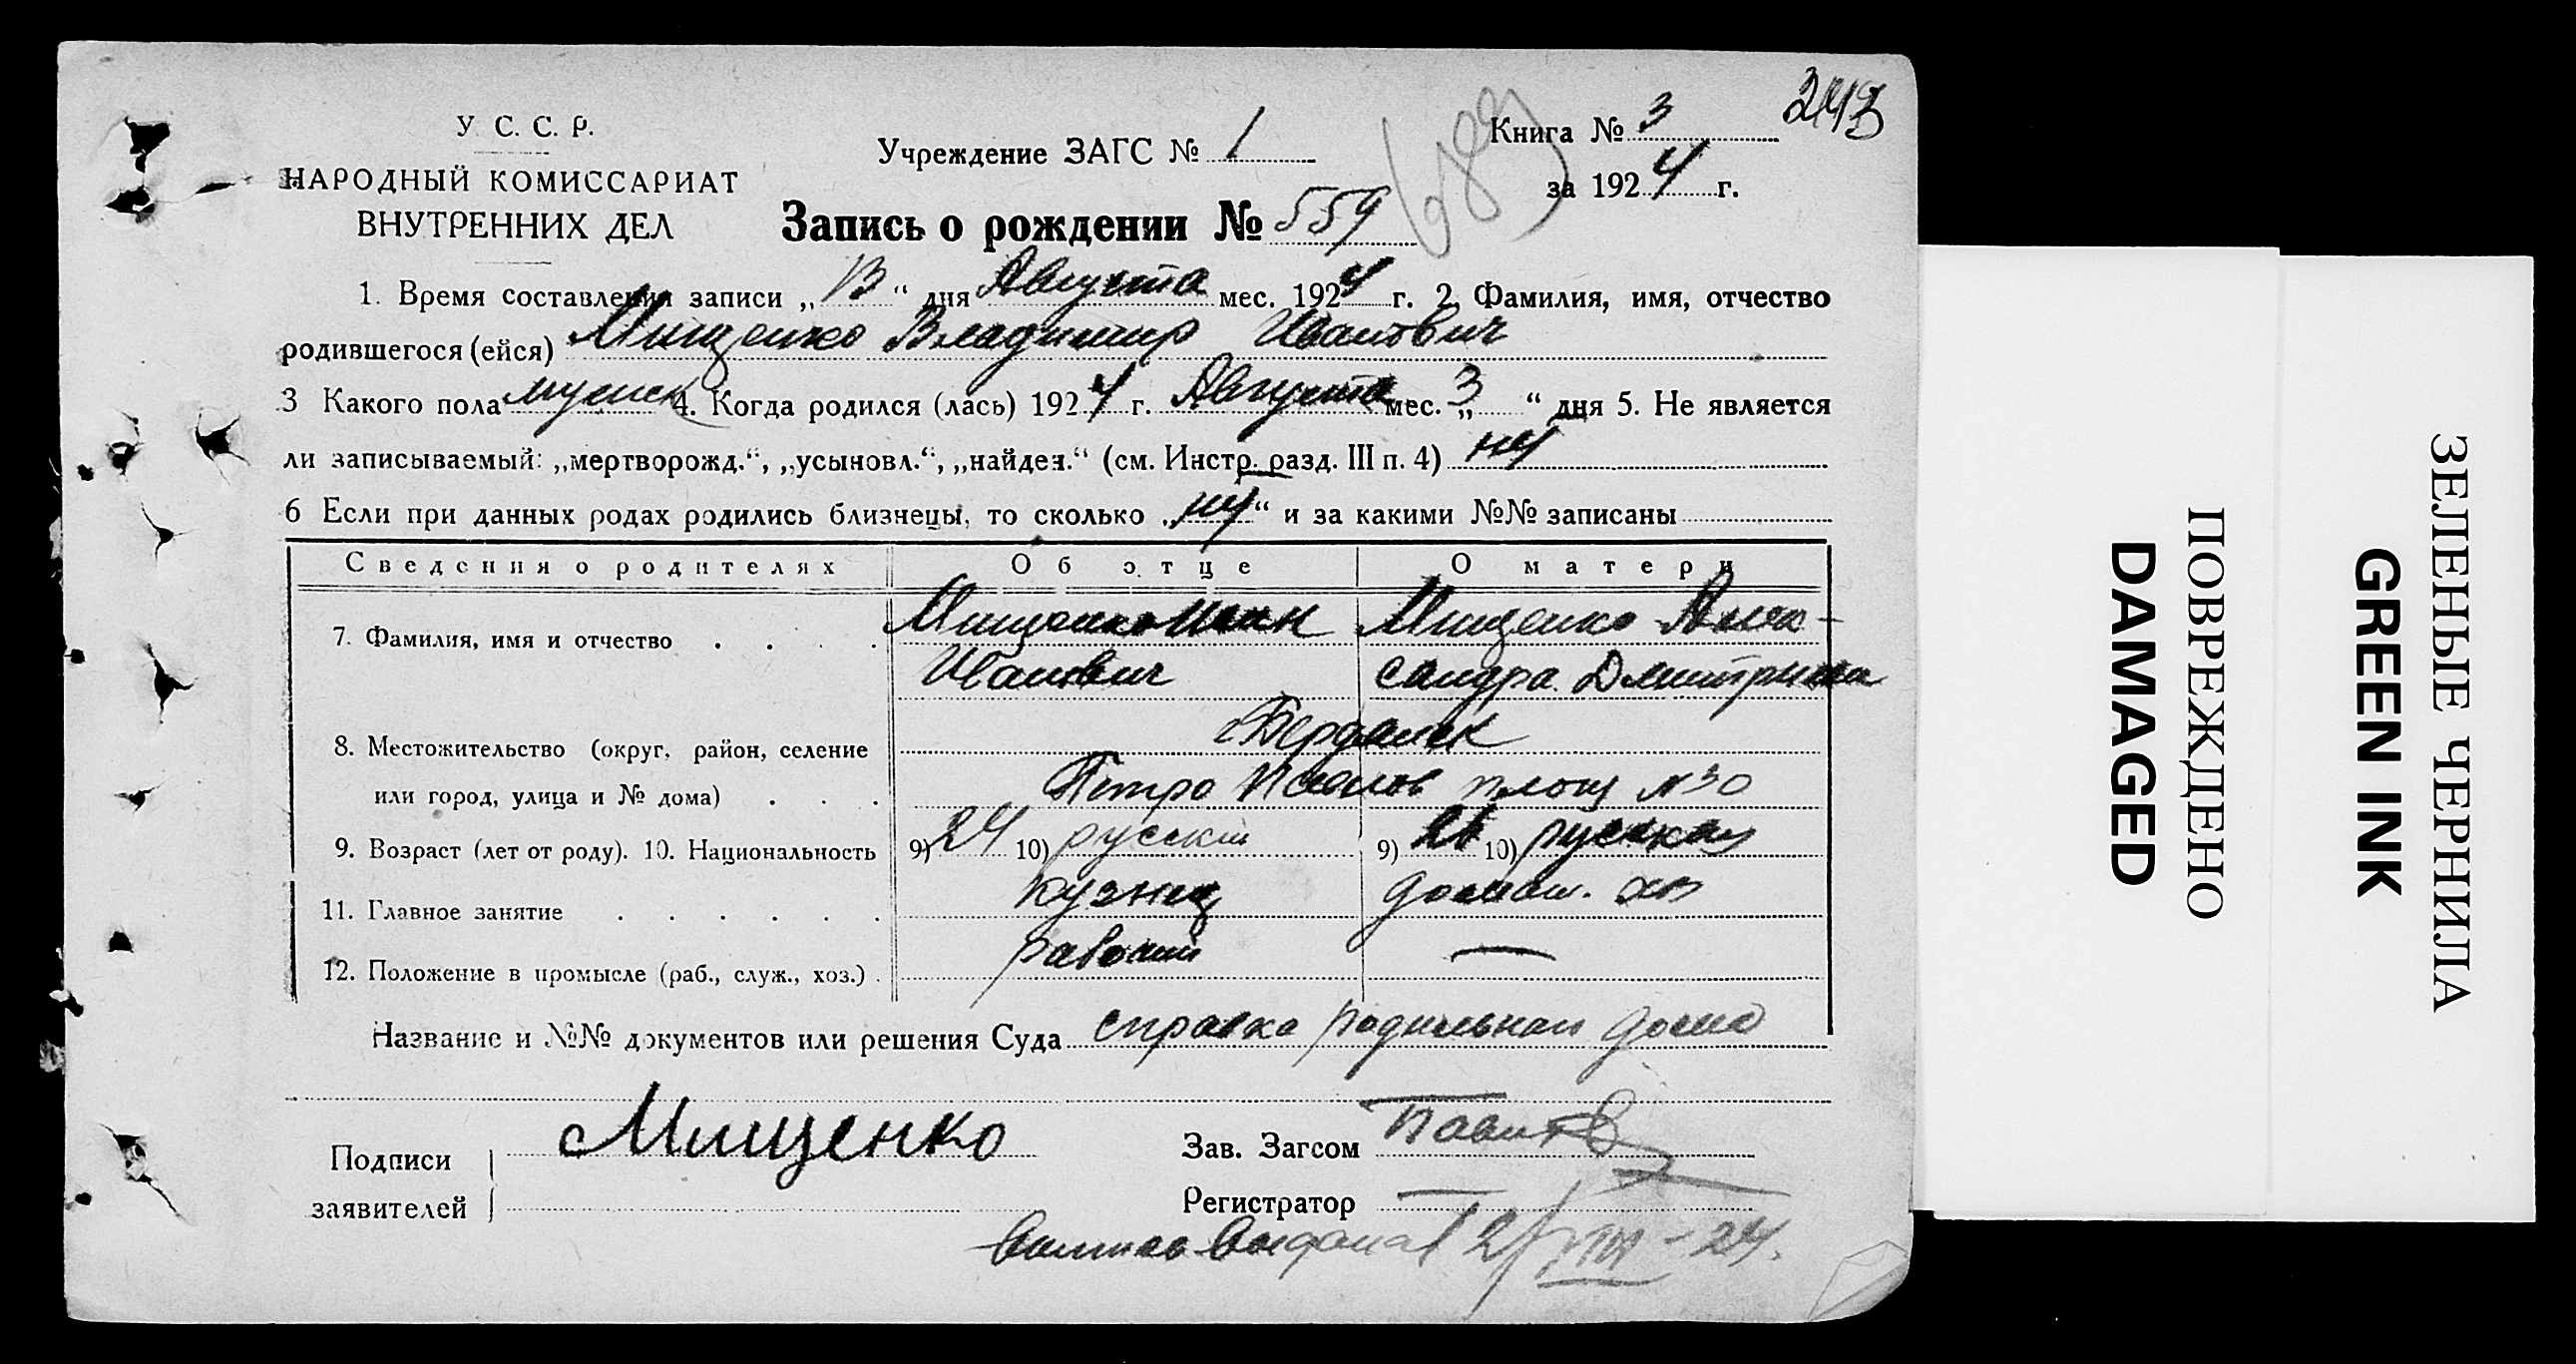 У. С. С. Р.
НАРОДНЫЙ КОМИССАРИАТ
ВНУТРЕННИХ ДЕЛ
Учреждение ЗАГС № 1
Книга № 3
за 1924 г.
Запись о рождении № 559
1. Время составления записи „13“ дня Августа мес. 1924 г. 2. Фамилия, имя, отчество
родившегося (ейся) Мищенко Владимир Иванович
3 Какого пола мужск 4. Когда родился (лась) 1924 г. Августа мес. „3“ дня 5. Не является
ли записываемый: „мертворожд.“, „усыновл.“, „найден.“ (см. Инстр. разд. III п. 4) нет
6 Если при данных родах родились близнецы, то сколько „нет“ и за какими №№ записаны
Сведения о родителях Об отце О матери
7. Фамилия, имя и отчество Мищенко Иван Мищенко Алек-
Иванович сандра Дмитриевна
8. Местожительство (округ, район, селение Бердянск
или город, улица и № дома) Петро Павлов площ №30
9. Возраст (лет от роду). 10. Национальность 9) 24 10) русский 9) 26 10) русская
11. Главное занятие кузнец домаш. хоз
12. Положение в промысле (раб., служ., хоз.) рабочий —
Название и №№ документов или решения Суда справка родильнаго дома
Подписи Мищенко
заявителей
Зав. Загсом
Регистратор
выдана 2/VIII-24.
ПОВРЕЖДЕНО
DAMAGED
ЗЕЛЕНЫЕ ЧЕРНИЛА
GREEN INK